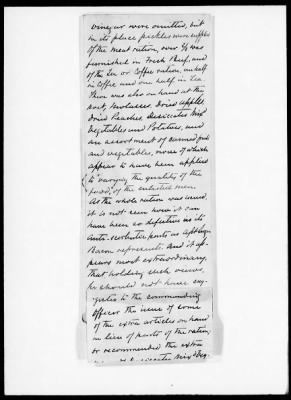 vinegar were omitted, but
in its place pickles were supplied
of the meat ration, over 5/8 was
furnished in Fresh Beef, and
of the Tea or Coffee ration, one half
in Coffee and one half in Tea.
There was also on hand at the
post, Molasses, Dried Apples,
Dried Peaches, Desiccated Mixed
Vegetables and Potatoes, and
an assortment of canned fruits
and vegetables, none of which
appear to have been applied
to "varying the quality of the
food," of the enlisted men.
As the whole ration was issued,
it is not seen how it can
have been so defective in its
anti-scorbutic parts as
represents. And it ap-
pears most extraordinary,
that holding such views,
he should not have
to the commanding
officer the issue of some
of the extra articles on hand
in lieu of parts of the ration,
or recommended the extra